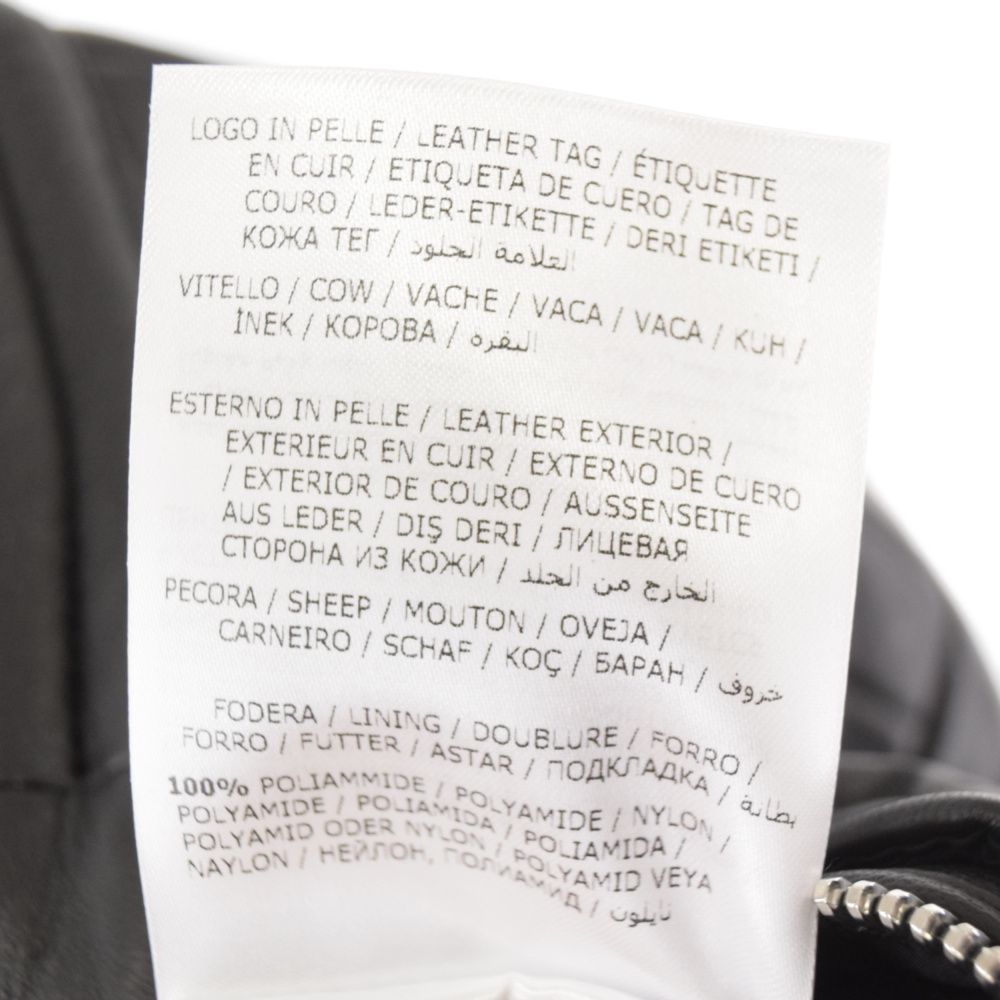 LOGO IN PELLE / LEATHER TAG / ÉTIQUETTE
EN CUIR / ETIQUETA DE CUERO / TAG DE
COURO / LEDER-ETIKETTE / DERI ETIKETI /
КОЖА ТЕГ / العلامة الجلود
VITELLO / COW / VACHE / VACA / VACA / KUH /
İNEK / КОРОВА / البقره
ESTERNO IN PELLE / LEATHER EXTERIOR /
EXTERIEUR EN CUIR / EXTERNO DE CUERO
/ EXTERIOR DE COURO / AUSSENSEITE
AUS LEDER / DIŞ DERI / ЛИЦЕВАЯ
СТОРОНА ИЗ КОЖИ / الخارج من الجلد
PECORA / SHEEP / MOUTON / OVEJA /
CARNEIRO / SCHAF / KOÇ / БАРАН / خروف
FODERA / LINING / DOUBLURE / FORRO /
FORRO / FUTTER / ASTAR / ПОДКЛАДКА / بطانة
100% POLIAMMIDE / POLYAMIDE / NYLON /
POLYAMIDE / POLIAMIDA / POLIAMIDA /
POLYAMID ODER NYLON / POLYAMID VEYA
NAYLON / НЕЙЛОН, ПОЛИАМИД / نايلون